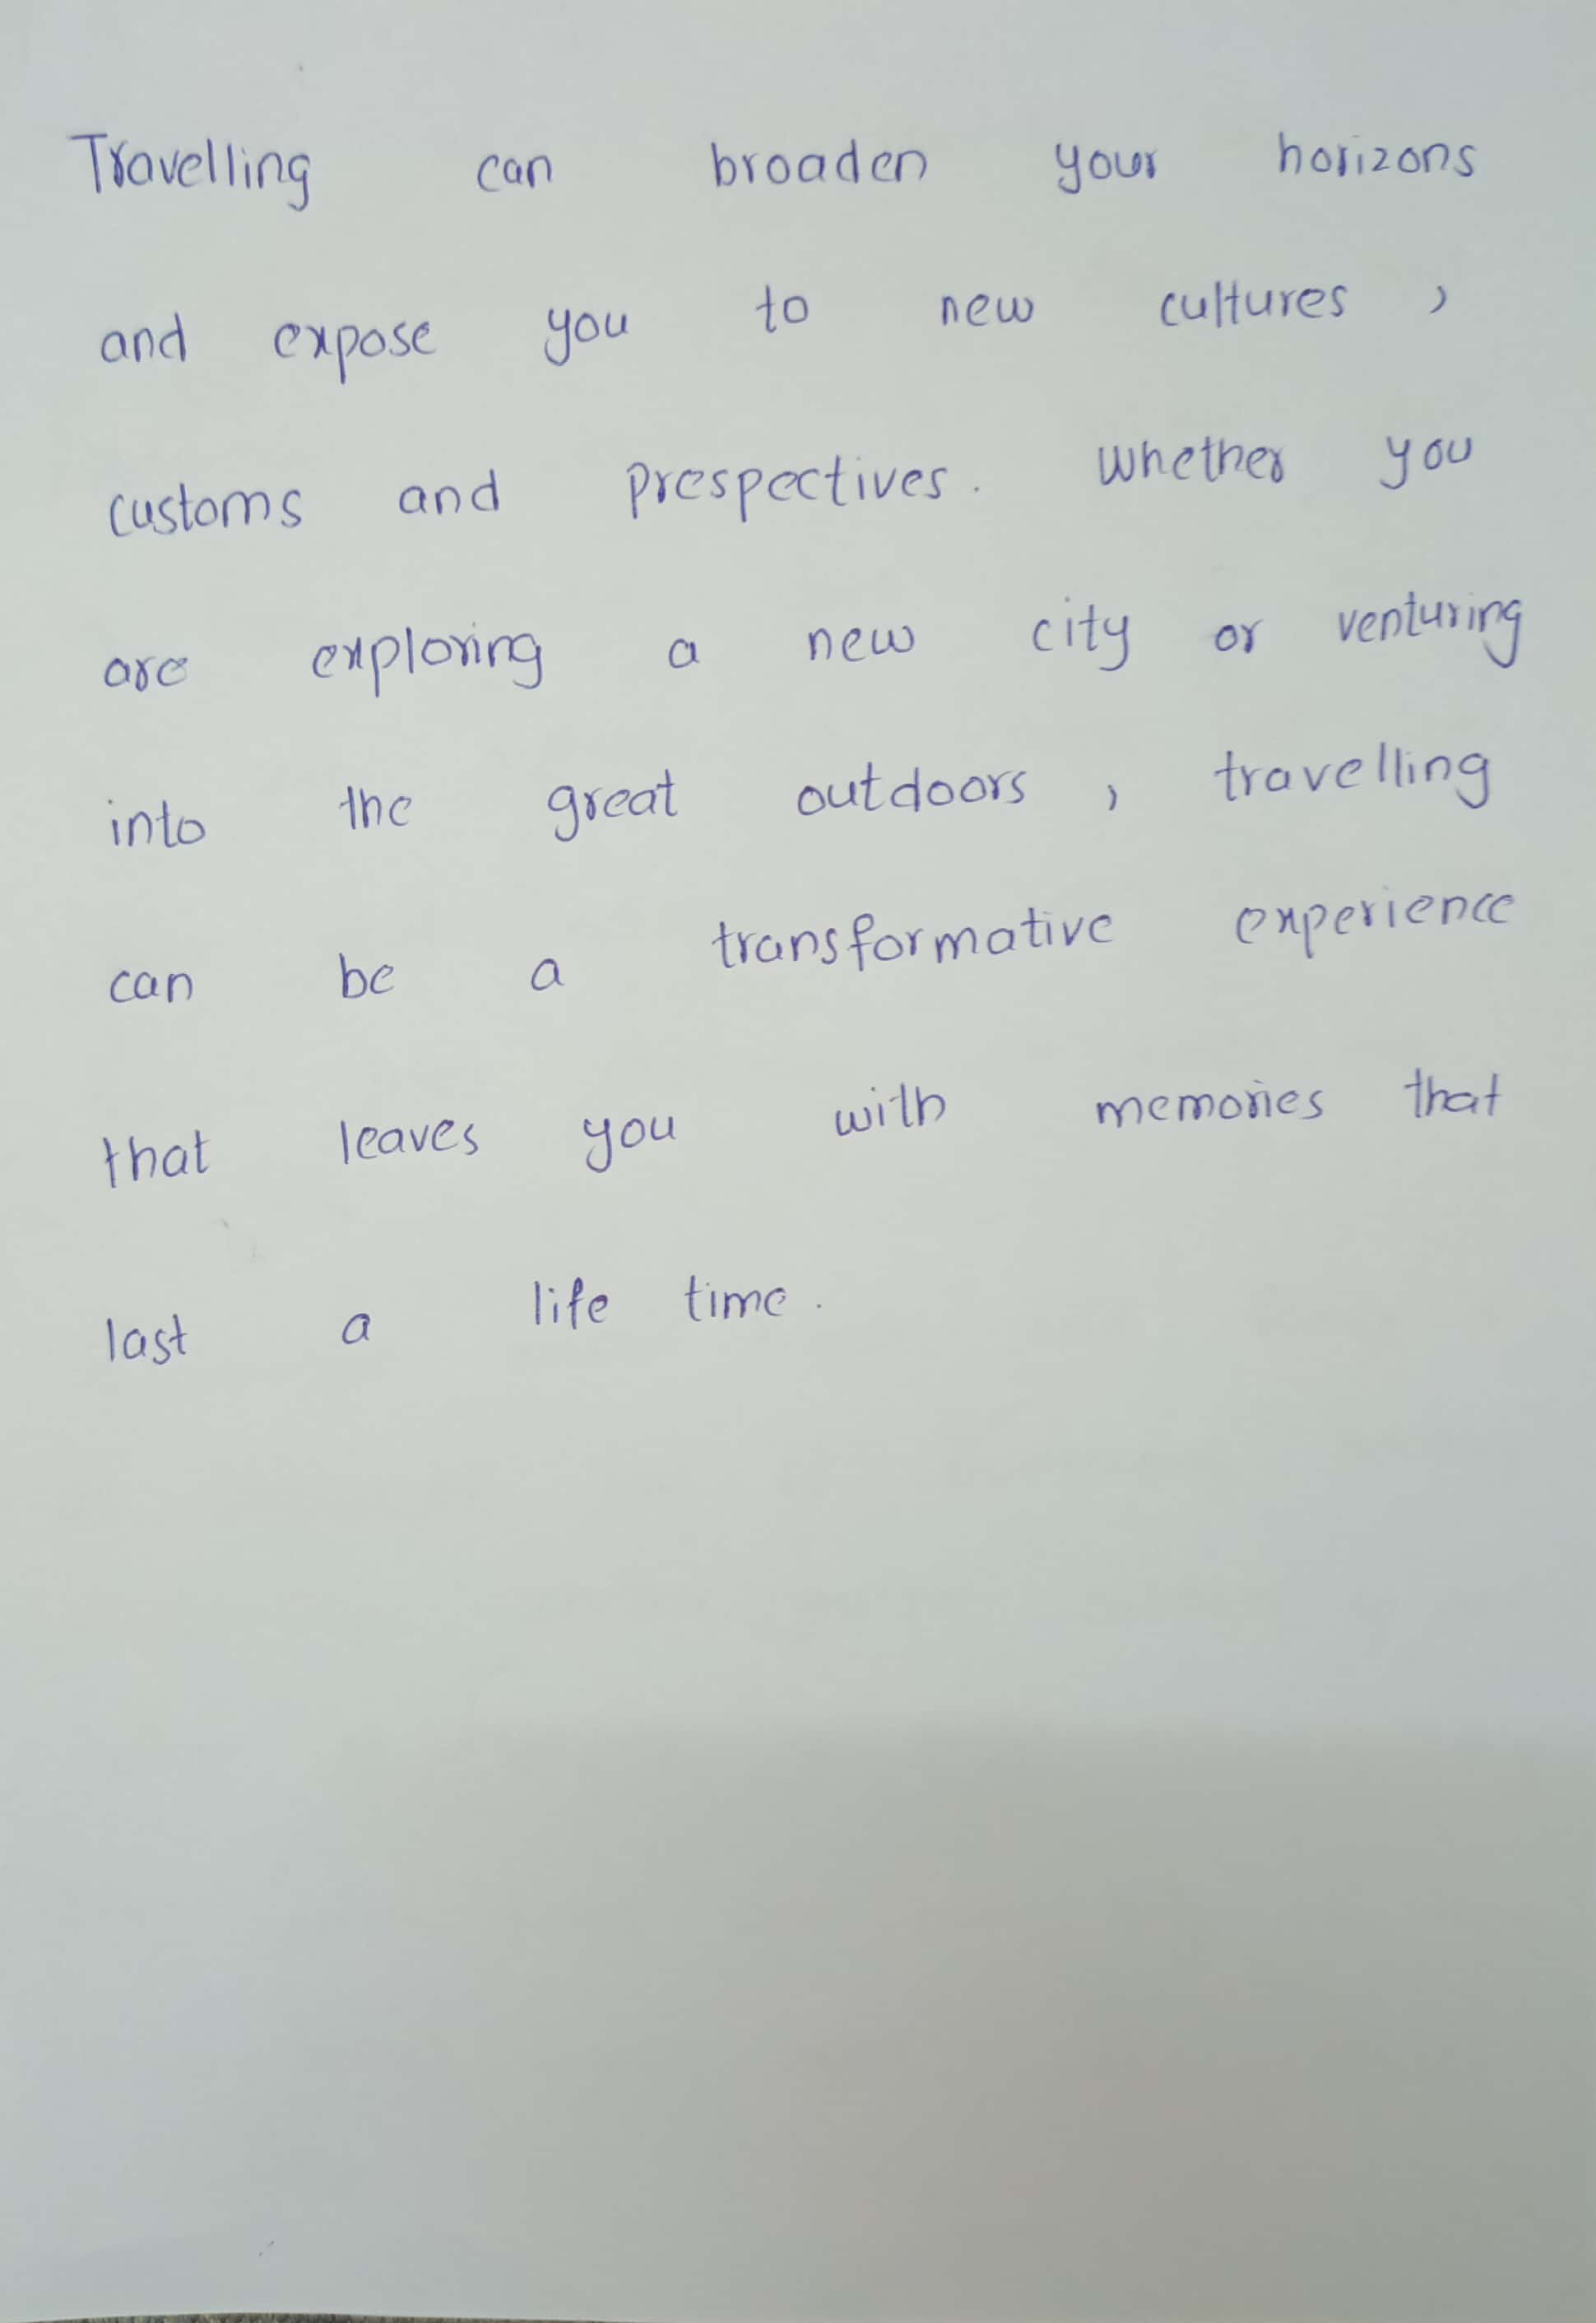 Travelling can broaden your horizons
and expose you to new cultures ,
customs and prespectives. Whether you
are exploring a new city or venturing
into the great outdoors , travelling
can be a transformative experience
that leaves you with memories that
last a life time.